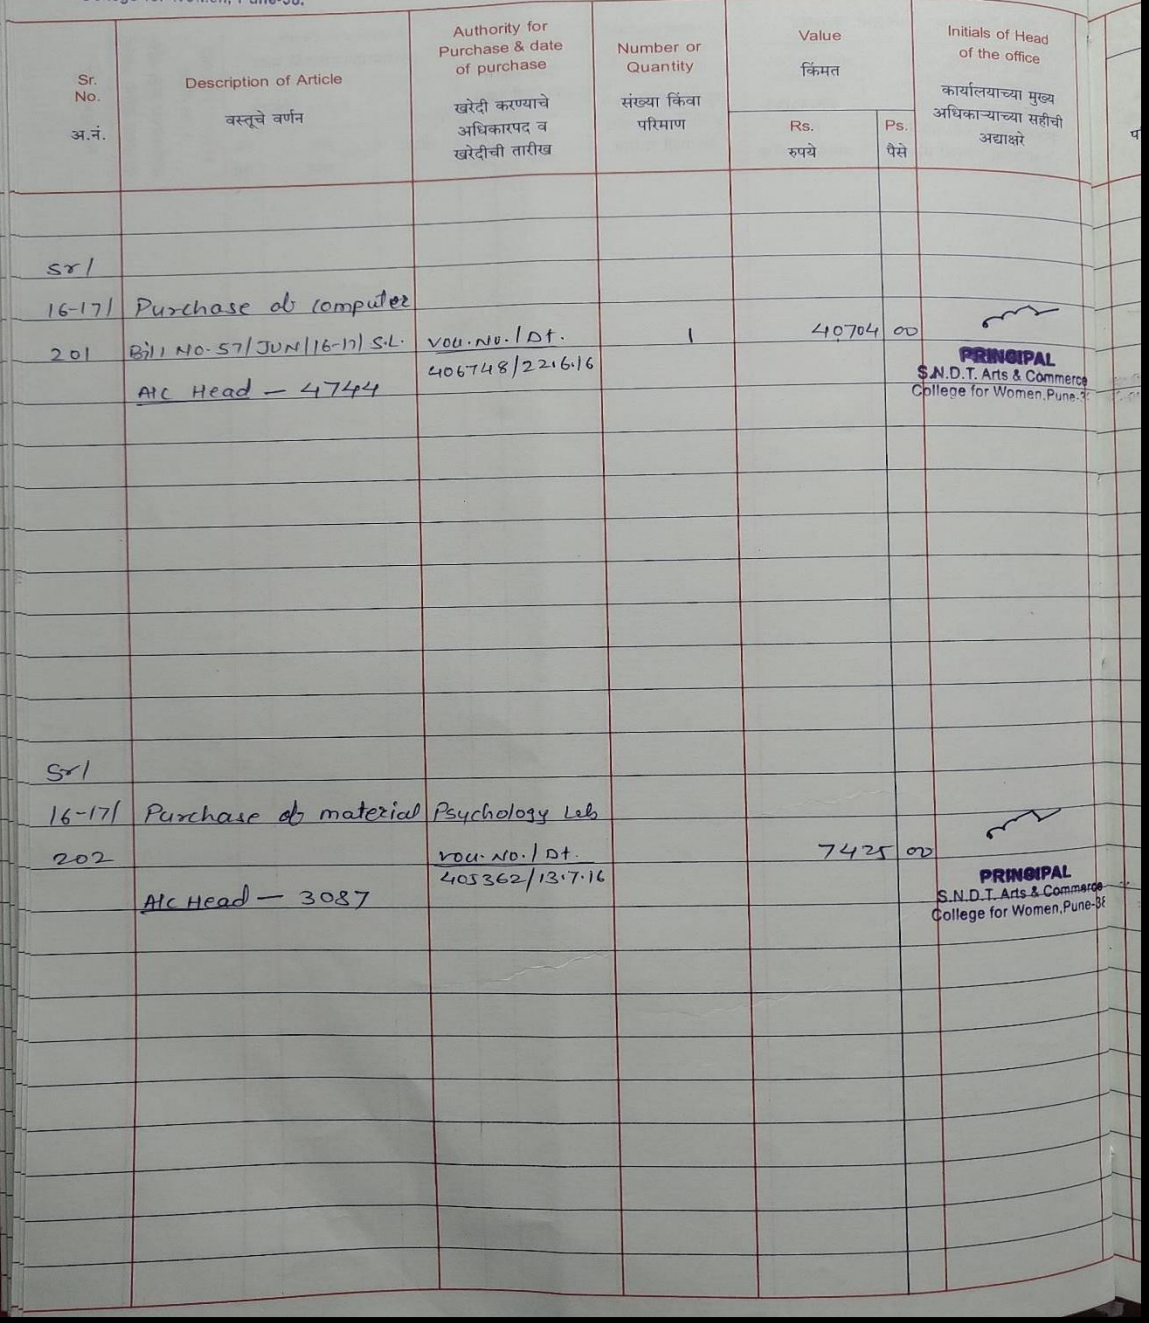 College for Women, Pune-38.
Sr. No.
अ.नं.
Description of Article
वस्तूचे वर्णन
Authority for
Purchase & date
of purchase
खरेदी करण्याचे
अधिकारपद व
खरेदीची तारीख
Number or
Quantity
संख्या किंवा
परिमाण
Value
किंमत
Rs.
रुपये
Ps.
पैसे
Initials of Head
of the office
कार्यालयाच्या मुख्य
अधिकाऱ्याच्या सहीची
अद्याक्षरे
Sr/
16-17/ Purchase of computer
201 Bill No. 57/JUN/16-17/S.L. Vou. No./Dt. 1 40704 00
406748/22.6.16
A/C Head - 4744
PRINCIPAL
S.N.D.T. Arts & Commerce
College for Women, Pune-3
Sr/
16-17/ Purchase of material Psychology Leb
202 Vou. No./Dt. 7425 00
405362/13.7.16
A/C Head - 3087
PRINCIPAL
S.N.D.T. Arts & Commerce
College for Women, Pune-38